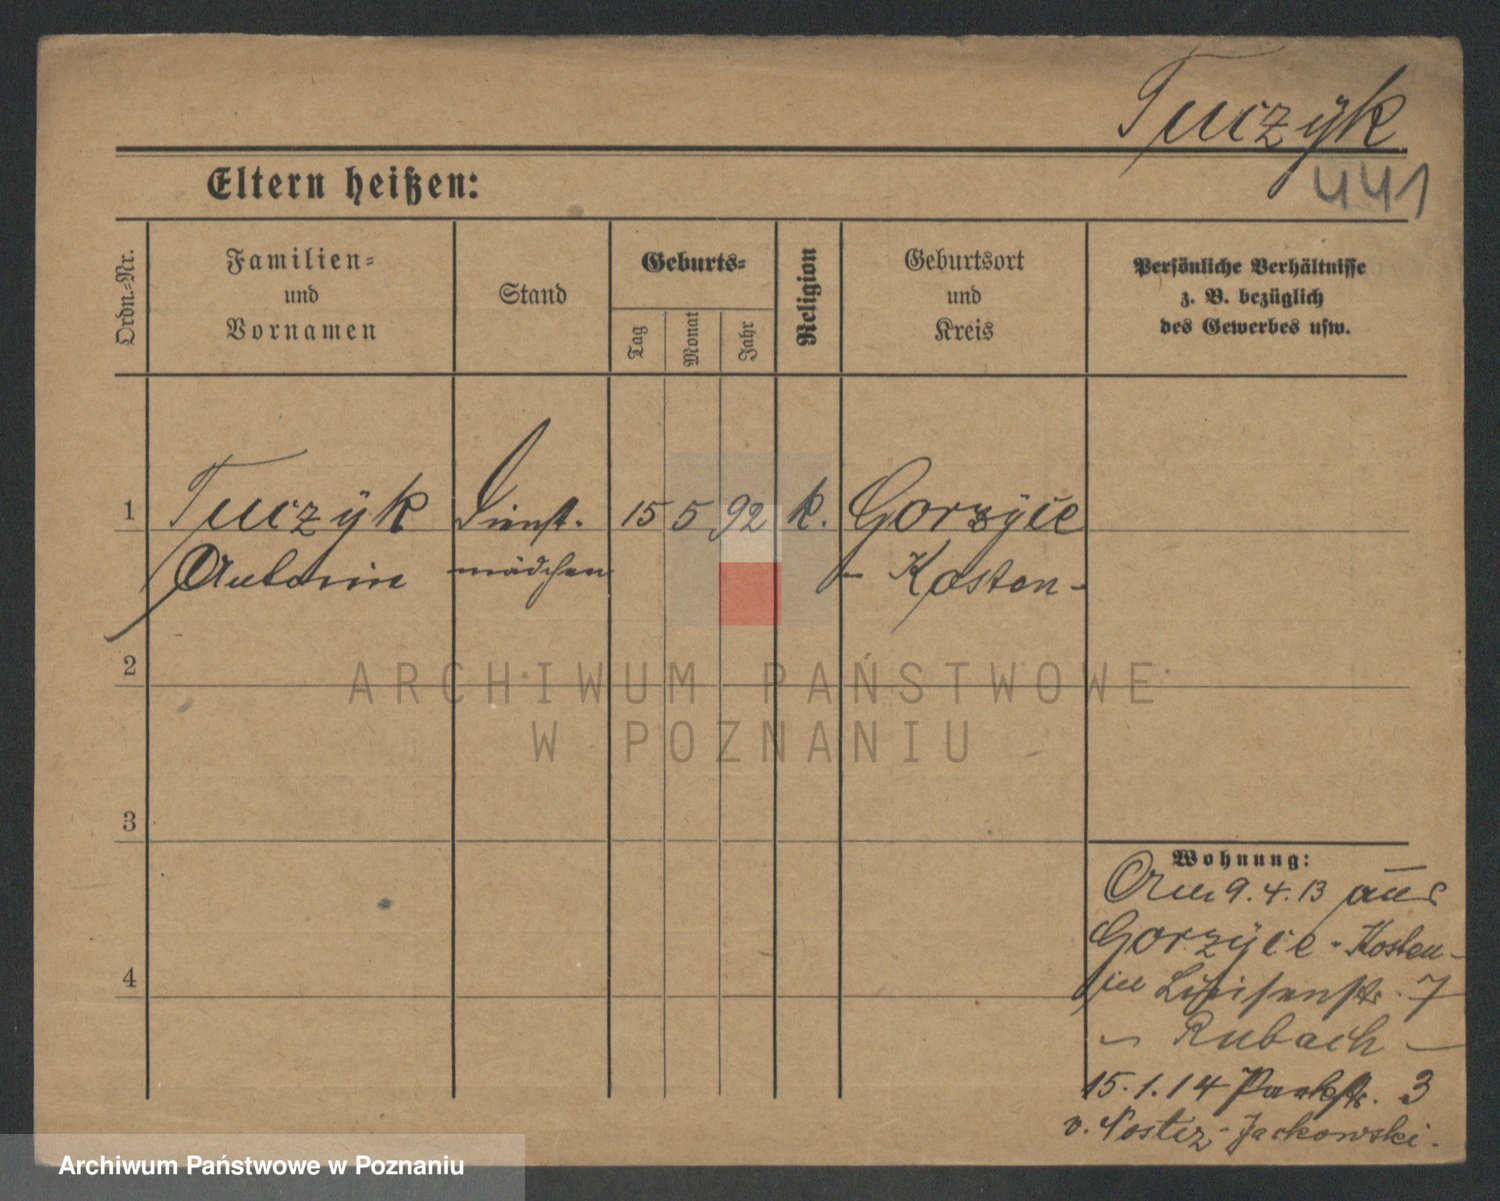 Tuczÿk
441
Eltern heißen:
Ordn.-Nr.
Familien-
und
Vornamen
Stand
Geburts-
Tag
Monat
Jahr
Religion
Geburtsort
und
Kreis
Persönliche Verhältnisse
z. B. bezüglich
des Gewerbes usw.
1
Tuczÿk Dienst- 15 5 92 k. Gorzÿce
Antonin mädchen - Kosten -
2
ARCHIWUM PAŃSTWOWE
W POZNANIU
3
Wohnung:
9.4.13 aus
Gorzÿce - Kosten -
in Luisenstr. 7
Rubach -
4
15.1.14 Parkstr. 3
v. Nostiz-Jackowski.
Archiwum Państwowe w Poznaniu